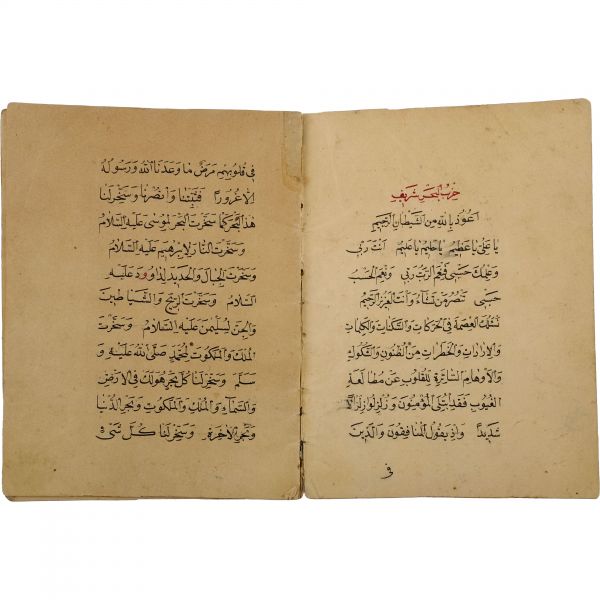 حزب البحر شريف
اعوذ بالله من الشيطان الرجيم
يا علي يا عظيم يا حليم يا عليم انت ربي
وعلمك حسبي فنعم الرب ربي ونعم الحسب
حسبي تنصر من تشاء وانت العزيز الرحيم
نسئلك العصمة في الحركات والسكنات والكلمات
والارادات والخطرات من الظنون والشكوك
والاوهام الساترة للقلوب عن مطالعة
الغيوب فقد ابتلي المؤمنون وزلزلوا زلزالا
شديدا واذ يقول المنافقون والذين
في
في قلوبهم مرض ما وعدنا الله ورسوله
الا غرورا فثبتنا وانصرنا وسخر لنا
هذا البحر كما سخرت البحر لموسى عليه السلام
وسخرت النار لابرهيم عليه السلام
وسخرت الجبال والحديد لداوود عليه
السلام وسخرت الريح والشياطين
والجن لسليمن عليه السلام وسخرت
الملك والملكوت لمحمد صلى الله عليه و
سلم وسخر لنا كل بحر هو لك في الارض
والسماء والملك والملكوت وبحر الدنيا
وبحر الاخرة وسخر لنا كل شئ